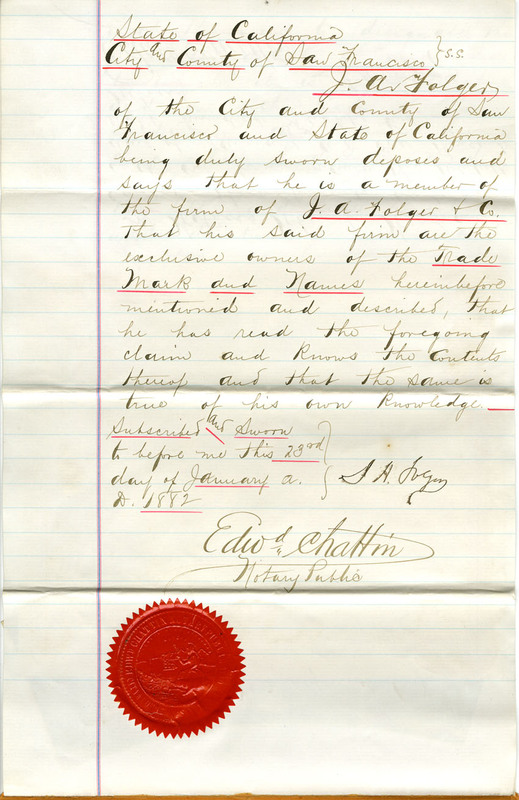 State of California
City and County of San Francisco } S.S.
J. A. Folger
of the City and County of San
Francisco and State of California
being duly sworn deposes and
says that he is a member of
the firm of J. A. Folger & Co.
that his said firm are the
exclusive owners of the Trade
Mark and Names hereinbefore
mentioned and described, that
he has read the foregoing
claim and knows the contents
thereof and that the same is
true of his own knowledge.
Subscribed and Sworn
to before me this 23rd
day of January A. J. A. Folger
D. 1882
Edwd. Chattin
Notary Public